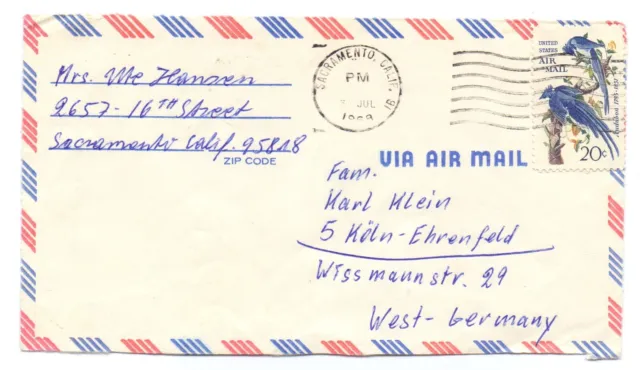 Mrs. Ute Hansen
2657-16TH Street
Sacramento Calif. 95818
ZIP CODE
SACRAMENTO, CALIF.
PM
JUL
UNITED STATES
AIR MAIL
20c
VIA AIR MAIL
Fam.
Karl Klein
5 Köln-Ehrenfeld
Wissmannstr. 29
West-Germany